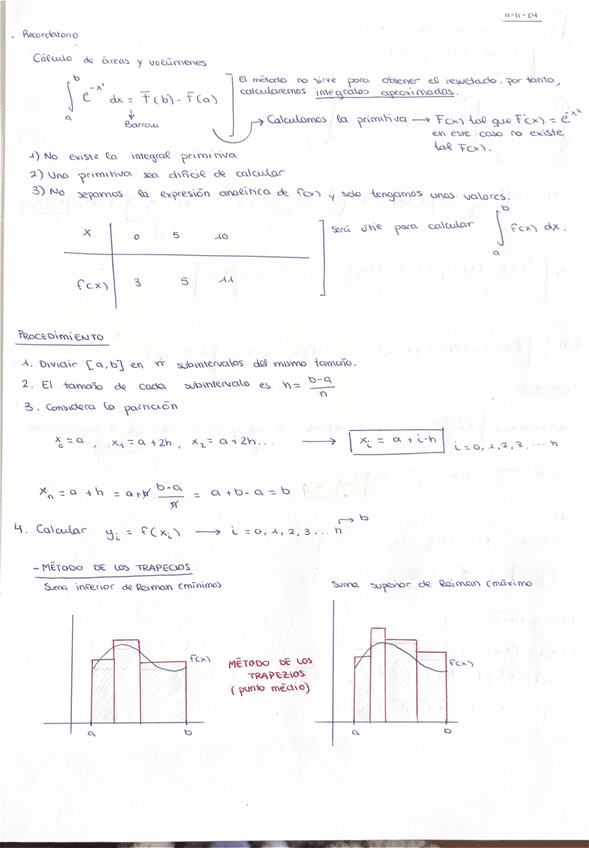 11-11-24
. Recordatorio
Cálculo de áreas y volúmenes
∫ₐᵇ e^-x² dx = F(b) - F(a)
Barrow
El método no sirve para obtener el resultado, por tanto,
calcularemos integrales aproximadas.
→ Calculamos la primitiva → F(x) tal que F'(x) = e^-x²
en este caso no existe
tal F(x).
1) No existe la integral primitiva
2) Una primitiva sea difícil de calcular
3) No sepamos la expresión analítica de f(x) y solo tengamos unos valores.
x 0 5 10
f(x) 3 5 11
será útil para calcular ∫ₐᵇ f(x) dx.
PROCEDIMIENTO
1. Dividir [a,b] en "n" subintervalos del mismo tamaño.
2. El tamaño de cada subintervalo es h = (b-a)/n
3. Considera la partición
x₀ = a , x₁ = a + 2h , x₂ = a + 2h ... → xᵢ = a + i·h i = 0, 1, 2, 3, ... n
xₙ = a + h = a + n (b-a)/n = a + b - a = b
4. Calcular yᵢ = f(xᵢ) → i = 0, 1, 2, 3 ... n → b
- MÉTODO DE LOS TRAPECIOS
Suma inferior de Reiman (mínimo)
Suma superior de Reiman (máximo
f(x)
a b
MÉTODO DE LOS
TRAPEZIOS
(punto médio)
f(x)
a b